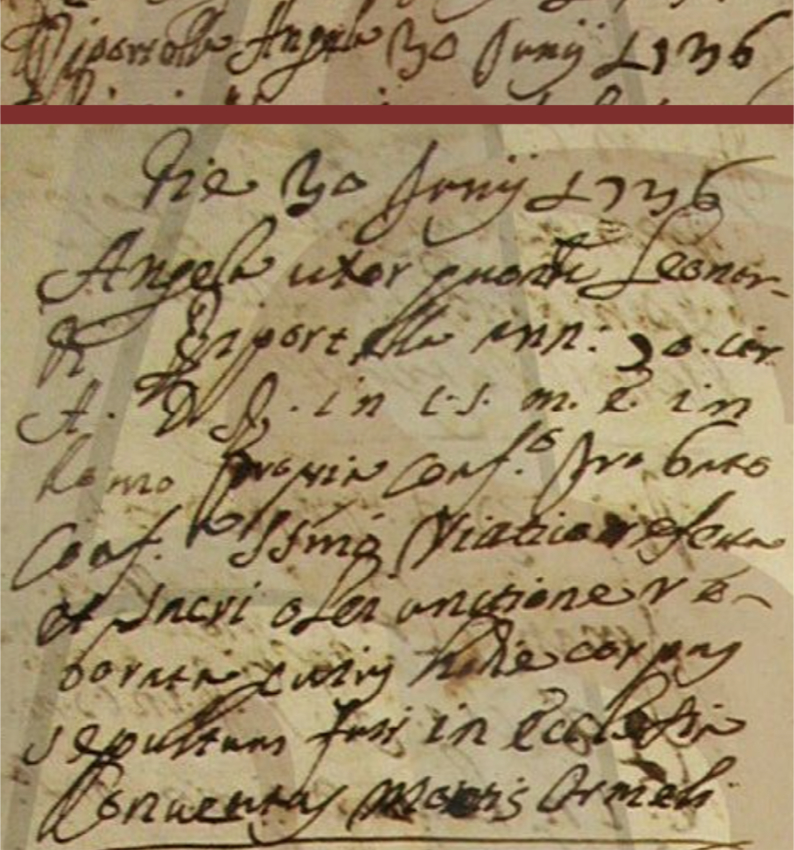 Angela 30 Junij 1736
Die 30 Junij 1736
Angela uxor quondam Leonar-
di Diportella ann: 30. cir.
A. D. S. in C. S. M. E. in
domo propria Conf.s Pro bato
Conf. SSmo Viatico refecta
et sacri olei unctione ro-
borata cuius hodie corpus
sepultum fuit in Ecclesia
Conventus Montis Carmeli